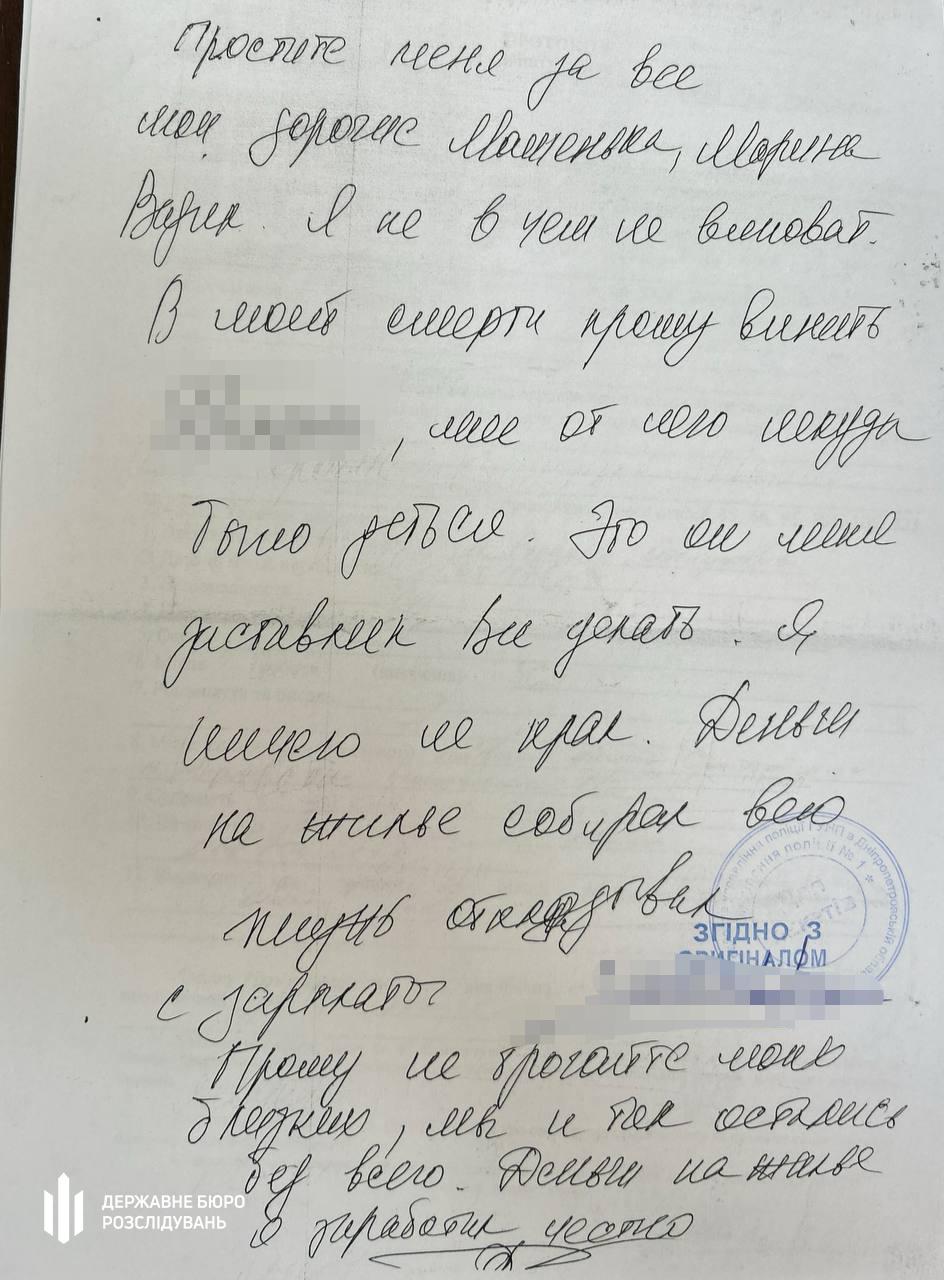 Простите меня за все
мои дорогие Машенька, Марина
Вадик. Я не в чем не виноват.
В моей смерти прошу винить
, мне от него некуда
было деться. Это он меня
заставлял все делать. Я
ничего не крал. Деньги
на жилье собирал всю
жизнь откладывал
с зарплаты
Прошу не трогайте моих
близких, мы и так остались
без всего. Деньги на жилье
я заработал честно
ЗГІДНО З
ОРИГІНАЛОМ
управління поліції ГУНП в Дніпропетровській області
відділення поліції № 1 *
ДЕРЖАВНЕ БЮРО
РОЗСЛІДУВАНЬ